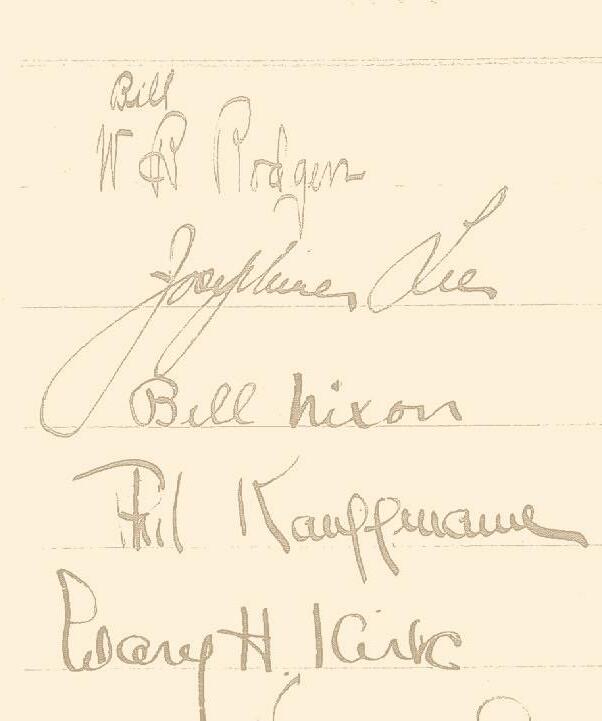 Bill
W R Rodgers
Josephine Lee
Bill Nixon
Phil Kauffmann
Mary H. Kirk